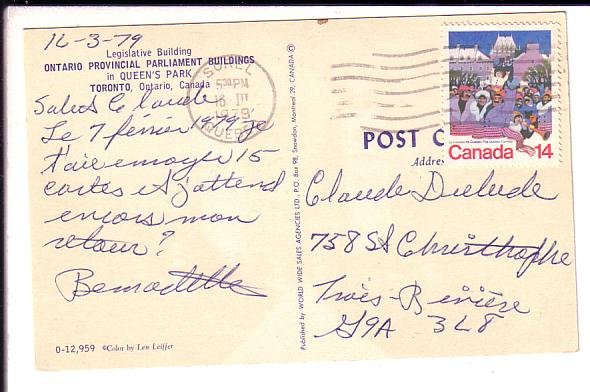 16-3-79
Legislative Building
ONTARIO PROVINCIAL PARLIAMENT BUILDINGS
in QUEEN'S PARK
TORONTO, Ontario, Canada
Salut Claude
Le 7 février 1979 je
t'aie envoyé 15
cartes et j'attend
encore mon
retour?
Bernadette
O-12,959 ©Color by Len Leiffer
SOREL
5 30 PM
16 III
1979
QUEBEC
Published by WORLD WIDE SALES AGENCIES LTD., P.O. Box 98, Snowdon, Montreal 29, CANADA ©
POST C
Addres
Canada 14
Claude
758 St Christophe
Trois-Rivière
G9A 3L8